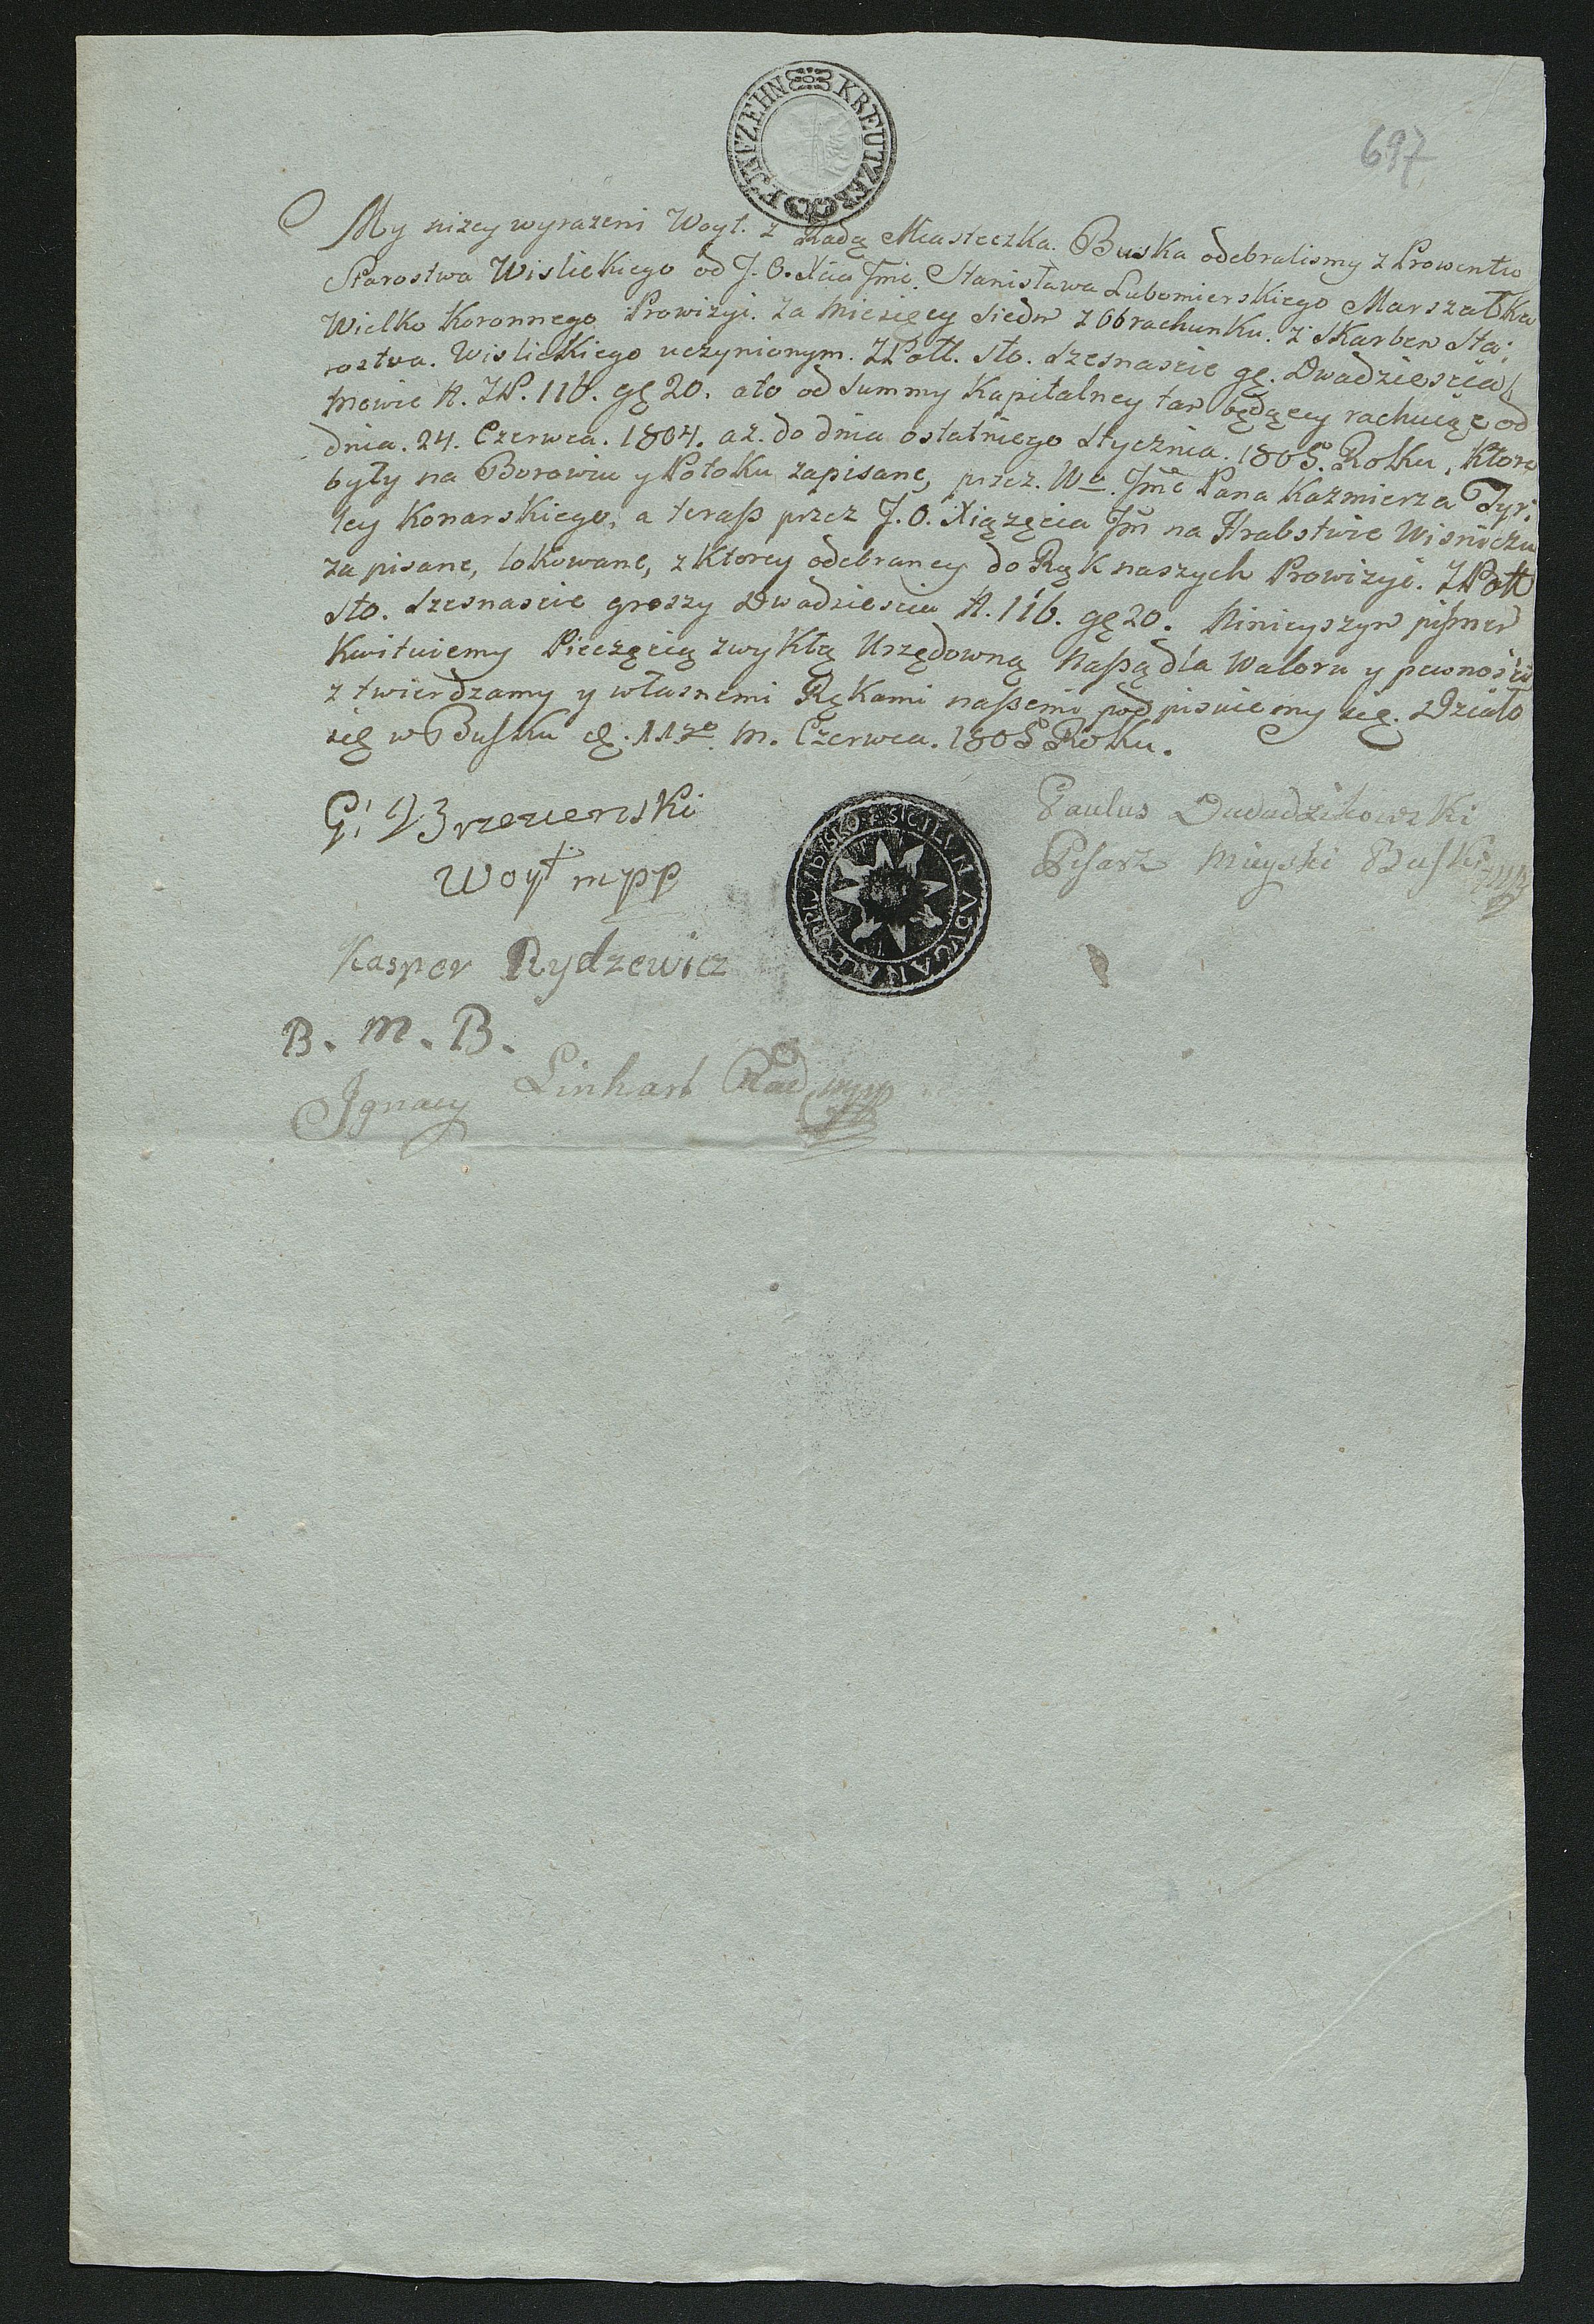 FUNFZEHN KREUTZER
697
My niżey wyrażeni Woyt. z Radą Miasteczka. Buska odebralismy z Prowentu
Starostwa Wislickiego od J. O. Xcia Jmci. Stanisława Lubomierskiego Marszałka
Wielko Koronnego Prowizyi. za Miesięcy Siedm z Obrachunku. z Skarbem Sta:
rostwa. Wislickiego uczynionym. ZPoll. Sto. Szesnascie gę. Dwadziescia
mowie N. ZP. 116. gę 20. a to od Summy Kapitalney tam będącey rachuiąc od
dnia. 24. Czerwca. 1804. aż. do dnia ostatniego Stycznia. 1805. Rolku, Ktore
były na Borowiu y Potoku zapisane, przez. Wo. Jmc Pana Kazmierza Tyr:
ley Konarskiego, a teraß przez J. O. Xiązęcia Jm na Hrabstwie Wisniczu
zapisane, lokowane, z Ktorey odebraney do Rąk naszych Prowizyi. ZPoll
Sto. Szesnascie groszy Dwadziescia N. 116. gę 20. Ninieyszym pismem
Kwituiemy Pieczęcią zwykłą Urzędowną Naßą dla Waloru y pewności
ztwierdzamy y własnemi Rękami naßemi podpisuiemy się. Działo
się w Busku d. 11go. M. Czerwca. 1805 Rolku.
G: Brzezienski
Woyt mpp
Paulus Dudzikowski
Pisarz Mieyski Buski mpp
Kasper Rydzewicz
B. M. B.
Ignacy Linhart Rad mpp